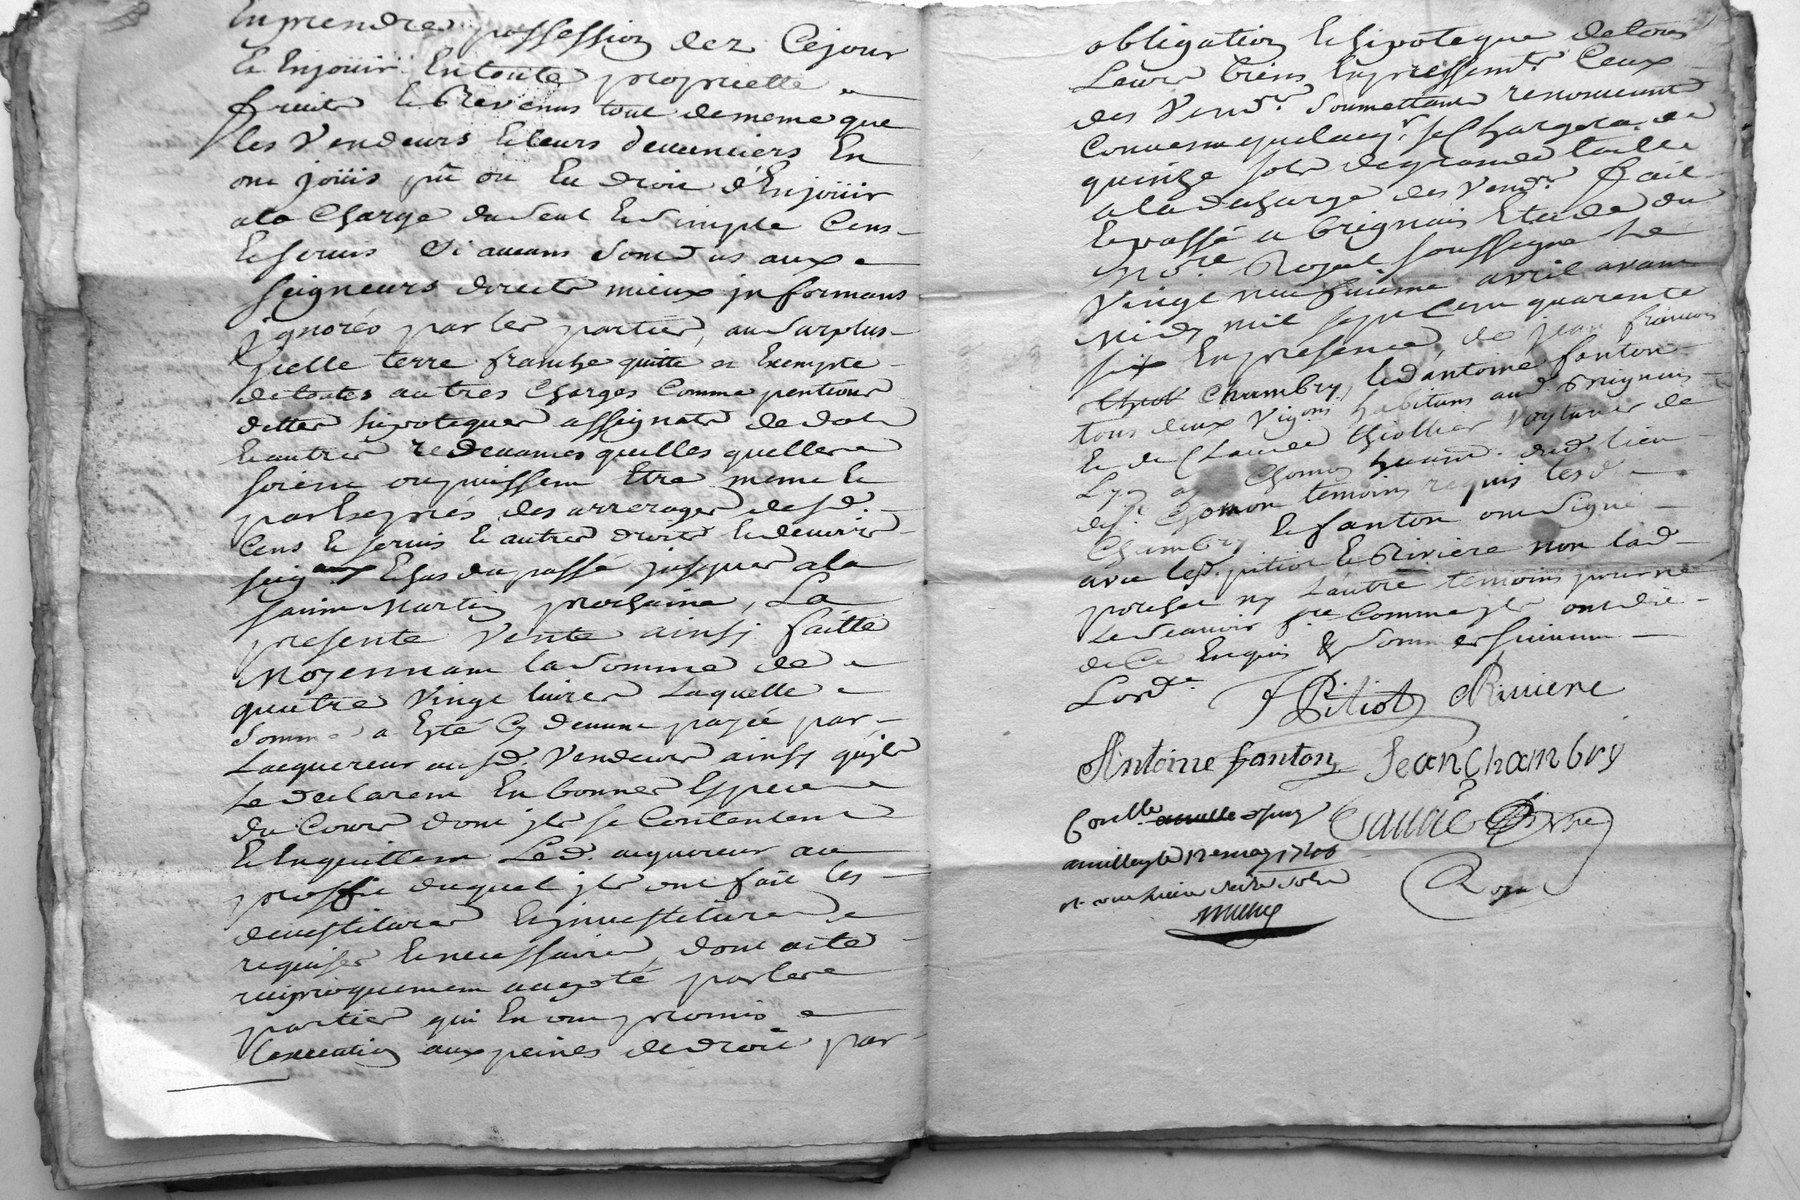 En prendre possession dez Cejour
Et Enjouir En toute proprietté
fruits Et Revenus tout demême que
les Vendeurs Et leurs devanciers En
ont joüis pû ou Eu droit d'Enjoüir
ala Charge du Seul Et Simple Cens
Et servis Si aucuns Sont dus aux
seigneurs directs mieux informans
ignorés par les parties, au Surplus
jcelle terre franche quitte et Exempte
detoutes autres Charges Comme pentions
dettes hipoteques assignats de dot
Et autres redevances quelles quelles
soient ou puissent Etre même Et
par Exprés des arrerages desd.
Cens Et servis Et autres droits Et devoirs
seigaux Echus du passé jusques ala
saint Martin prochaine, La
presente Vente ainsi faitte
Moyennant la Somme de
quatre Vingt livres Laquelle
Somme a Esté Cy devant payée par
Lacquereur ausd. Vendeurs ainsi qu'jls
Le declarent En bonnes Especes
du Cours dont jls se Contentent
Et Enquittent Led. acquereur au
proffit duquel jls ont fait les
devestitures Et jnvestitures
requises Et necessaires, dont acte
reciproquement accepté par les
parties qui En ont promis
l'execution aux peines de droit par
obligation Et hipoteque de tous
Leurs biens En presents Ceux
des Vendrs. Soumettans renonceant
Convenu que lacqr. se Chargera de
quinze sols de grande taille
ala decharge des Vendrs. fait
Et passé a brignais Etude du
Nore. Royal soussigné Le
Vingt neufvieme avril avant
Midy mil sept Cent quarente
six En presence de jean francois
Chambry, Et d'antoine fanton
tous deux Vigons. habitans aud. Brignais
Et de Claude thiollier Voyturier de
Lyon
temoins requis lesd.
Chambry Et fanton ont Signé
avec lesd. pitiot Et Riviere non lad.
ny L'autre temoins pour ne
Le Scavoir fre. Comme jls ont dit
de Ce Enquis & Sommés suivant
Lord.e
Pitiot Riviere
Antoine fanton Jean Chambry
1746